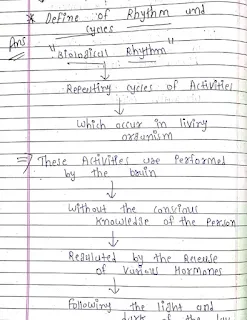 * Define of Rhythm and
cycles
Ans
"Biological Rhythm"
Repeating cycles of Activities
which occur in living
organism
⇒ These Activities are Performed
by the brain
without the conscious
knowledge of the Person
Regulated by the Release
of various Hormones
Following the light and
dark of the